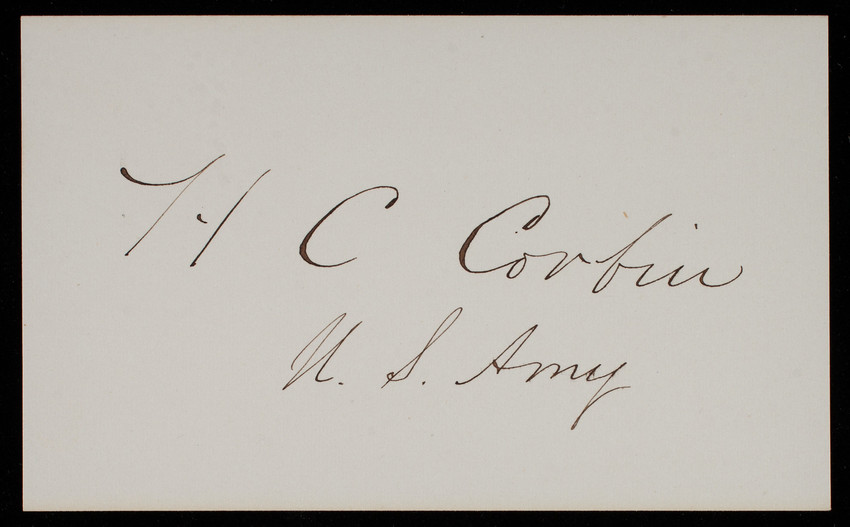 H C Corbin
U. S. Army